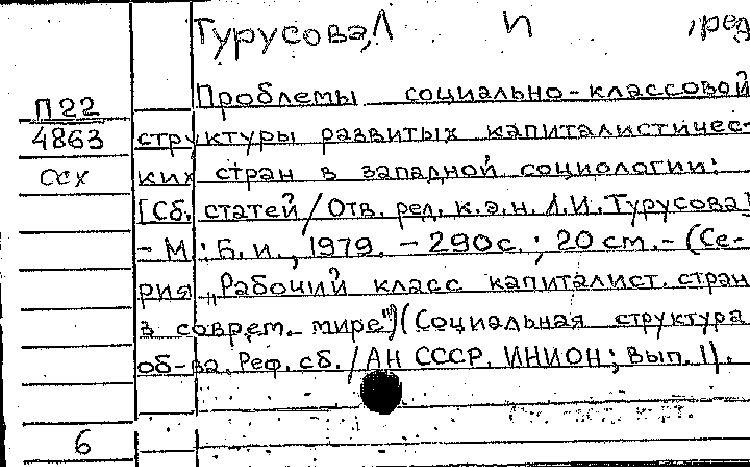 Турусова, Л И , ред
Проблемы социально-классовой
П22
4863 структуры развитых капиталистичес-
ссх ких стран в западной социологии:
[Сб. статей / Отв. ред. к.э.н. Л.И. Турусова]
- М.: Б.и., 1979. - 290с.; 20 см. - (Се-
рия "Рабочий класс капиталист. стран
в соврем. мире")(Социальная структура
об-ва. Реф. сб. / АН СССР. ИНИОН; Вып. 1).
6